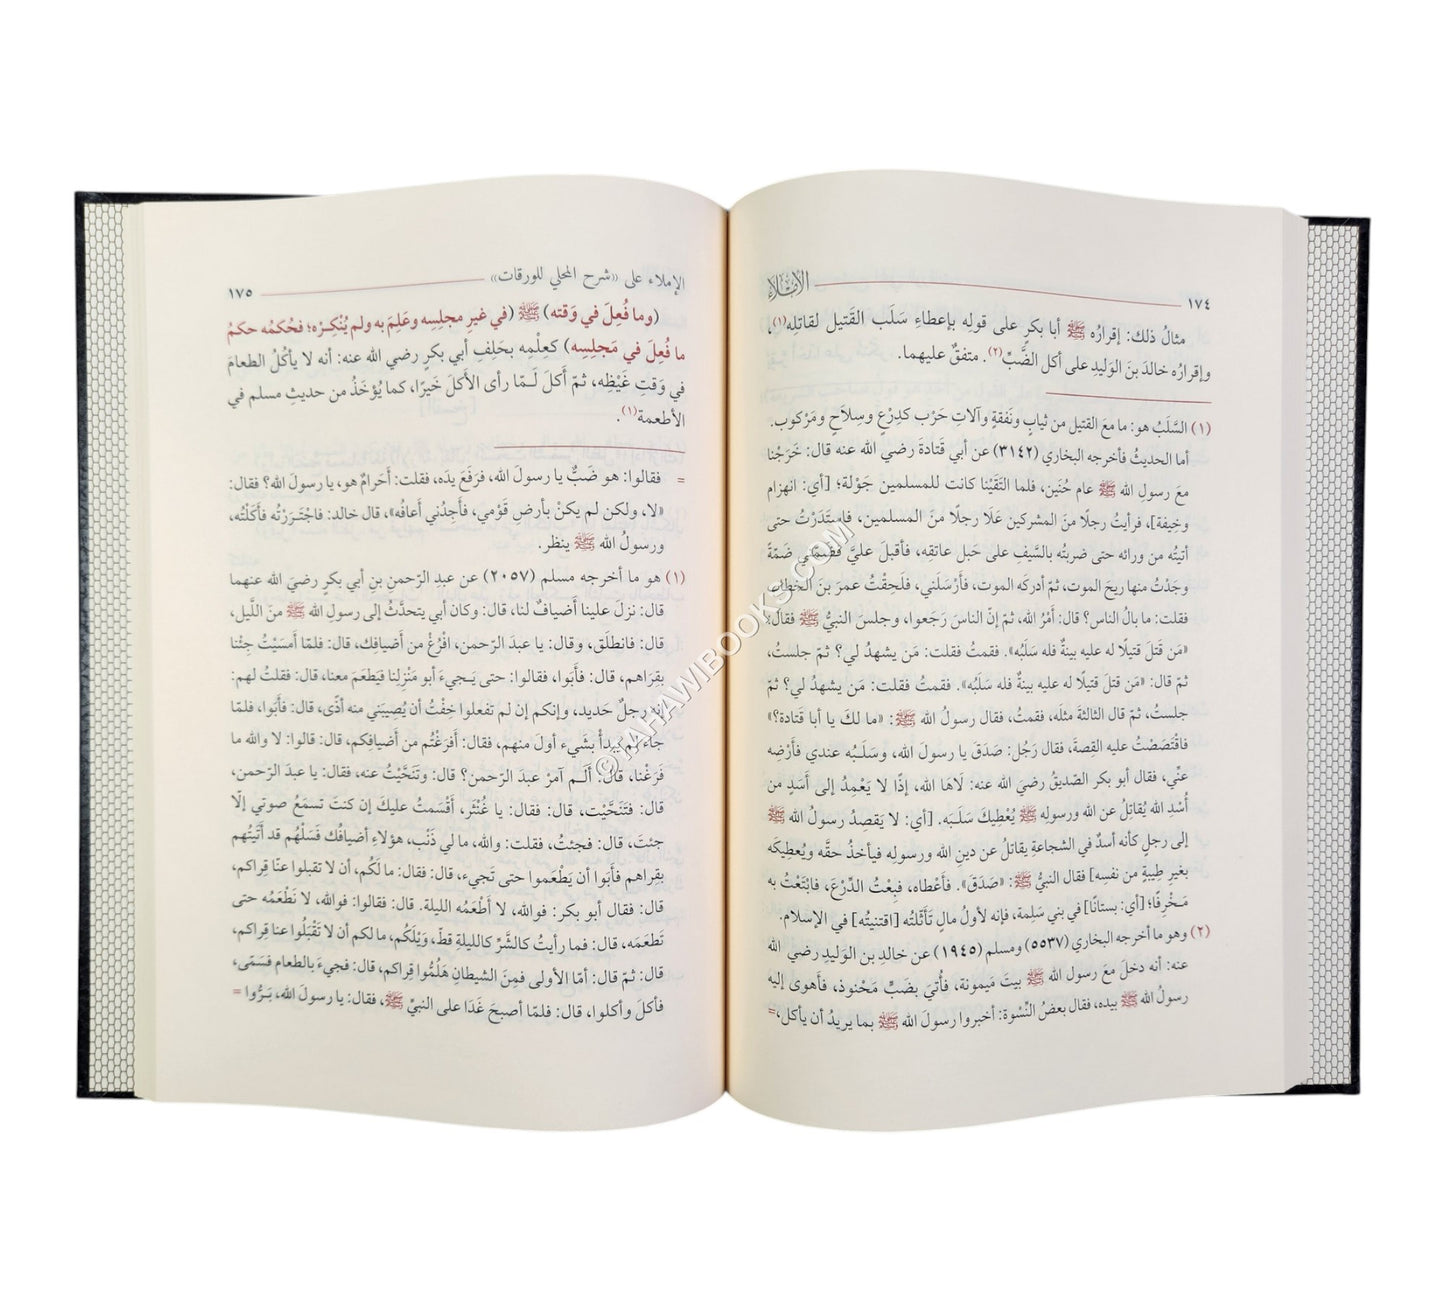 ١٧٤ الإملاء
مثالُ ذلك: إقرارُه ﷺ أبا بكرٍ على قولِه بإعطاءِ سَلَب القَتيل لقاتلِه(١)،
وإقرارُه خالدَ بنَ الوَليدِ على أكل الضَّبِّ(٢). متفقٌ عليهما.
(١) السَّلَبُ هو: ما معَ القتيل من ثيابٍ ونَفقةٍ وآلاتِ حَرْب كدِرْعٍ وسِلاحٍ ومَرْكوب.
أما الحديثُ فأخرجه البخاري (٣١٤٢) عن أبي قَتادةَ رضي الله عنه قال: خَرَجْنا
معَ رسولِ الله ﷺ عام حُنَين، فلما التَقَيْنا كانت للمسلمين جَوْلة؛ [أي: انهزام
وخِيفة]، فرأيتُ رجلًا منَ المشركين عَلَا رجلًا منَ المسلمين، فاستَدَرْتُ حتى
أتيتُه من ورائه حتى ضربتُه بالسَّيفِ على حَبل عاتقِه، فأقبلَ عليَّ فضَمَّني ضَمّةً
وجَدْتُ منها ريحَ الموت، ثمّ أدركَه الموت، فأَرْسَلَني، فلَحِقْتُ عمرَ بنَ الخطاب
فقلت: ما بالُ الناس؟ قال: أَمْرُ الله، ثمّ إنّ الناسَ رَجَعوا، وجلسَ النبيُّ ﷺ فقال:
«مَن قَتلَ قتيلًا له عليه بينةٌ فله سَلَبُه». فقمتُ فقلت: مَن يشهدُ لي؟ ثمّ جلست،
ثمّ قال: «مَن قتلَ قتيلًا له عليه بينةٌ فله سَلَبُه». فقمتُ فقلت: مَن يشهدُ لي؟ ثمّ
جلستُ، ثمّ قال الثالثةَ مثلَه، فقمتُ، فقال رسولُ الله ﷺ: «ما لكَ يا أبا قَتادة؟»
فاقتَصَصْتُ عليه القِصةَ، فقال رَجُل: صَدَقَ يا رسولَ الله، وسَلَبُه عندي فأَرْضِه
عنِّي، فقال أبو بكر الصّديقُ رضيَ الله عنه: لَاهَا الله، إذًا لا يَعْمِدُ إلى أَسَدٍ من
أُسْدِ الله يُقاتلُ عن الله ورسولِه ﷺ يُعْطِيكَ سَلَبَه. [أي: لا يَقصِدُ رسولُ الله ﷺ
إلى رجلٍ كأنه أسدٌ في الشجاعةِ يقاتلُ عن دينِ الله ورسولِه فيأخذُ حقَّه ويُعطِيكَه
بغيرِ طِيبةٍ من نفسِه] فقال النبيُّ ﷺ: «صَدَقَ». فأَعْطاه، فبِعْتُ الدِّرْعَ، فابْتَعْتُ به
مَخْرِفًا؛ [أي: بستانًا] في بني سَلِمة، فإنه لأولُ مالٍ تَأَثَّلتُه [اقتنيتُه] في الإسلام.
(٢) وهو ما أخرجه البخاري (٥٥٣٧) ومسلم (١٩٤٥) عن خالدِ بن الوَليدِ رضي الله
عنه: أنه دخلَ معَ رسول الله ﷺ بيتَ مَيمونة، فأُتيَ بضَبٍّ مَحْنوذ، فأهوى إليه
رسولُ الله ﷺ بيده، فقال بعضُ النِّسْوة: أخبروا رسولَ الله ﷺ بما يريدُ أن يأكل، =
الإملاء على «شرح المحلي للورقات» ١٧٥
(وما فُعِلَ في وَقته) ﷺ (في غيرِ مجلِسِه وعَلِمَ به ولم يُنْكِرْه؛ فحُكمُه حكمُ
ما فُعِلَ في مَجلِسِه) كعِلْمِه بحَلِفِ أبي بكرٍ رضي الله عنه: أنه لا يأكُلُ الطعامَ
في وَقتِ غَيْظِه، ثمّ أكَلَ لَـمّا رأى الأكلَ خَيرًا، كما يُؤخَذُ من حديثِ مسلم في
الأطعمة(١).
= فقالوا: هو ضَبٌّ يا رسولَ الله، فرَفَعَ يدَه، فقلت: أحَرامٌ هو، يا رسولَ الله؟ فقال:
«لا، ولكن لم يكنْ بأرضِ قَوْمي، فأجِدُني أعافُه»، قال خالد: فاجْتَرَرْتُه فأكَلْتُه،
ورسولُ الله ﷺ ينظر.
(١) هو ما أخرجه مسلم (٢٠٥٧) عن عبدِ الرّحمنِ بنِ أبي بكرٍ رضيَ الله عنهما
قال: نزلَ علينا أضيافٌ لنا، قال: وكان أبي يتحدَّثُ إلى رسولِ الله ﷺ منَ اللَّيل،
قال: فانطلَق، وقال: يا عبدَ الرّحمن، افْرُغْ من أضيافِك، قال: فلمّا أمسَيْتُ جِئْنا
بقِرَاهم، قال: فأَبَوا، فقالوا: حتى يَـجيءَ أبو مَنْزِلِنا فيَطعَمَ معنا، قال: فقلتُ لهم:
إنه رجلٌ حَديد، وإنكم إن لم تفعلوا خِفْتُ أن يُصِيبَني منه أذًى، قال: فأَبَوا، فلمّا
جاءَ لم يبدأْ بشَيءٍ أولَ منهم، فقال: أفرَغْتُم من أضيافِكم، قال: قالوا: لا والله ما
فَرَغْنا، قال: أَلَـم آمرْ عبدَ الرّحمن؟ قال: وتَنَحَّيْتُ عنه، فقال: يا عبدَ الرّحمن،
قال: فتَنَحَّيْت، قال: فقال: يا غُنْثَر، أقْسَمتُ عليكَ إن كنتَ تسمَعُ صوتي إلّا
جئتَ، قال: فجئتُ، فقلت: والله، ما لي ذَنْب، هؤلاءِ أضيافُك فسَلْهُم قد أتَيْتُهم
بقِراهم فأبَوا أن يَطْعَموا حتى تَجيء، قال: فقال: ما لَكُم، أن لا تقبلوا عنّا قِراكم،
قال: فقال أبو بكر: فوالله، لا أَطْعَمُه الليلة. قال: فقالوا: فوالله، لا نَطْعَمُه حتى
تَطعَمَه، قال: فما رأيتُ كالشَّرِّ كالليلةِ قطّ، ويْلَكُم، ما لكم أن لا تَقْبَلُوا عنا قِراكم،
قال: ثمّ قال: أمّا الأولى فمِنَ الشيطانِ هَلُمُّوا قِراكم، قال: فجيءَ بالطعام فسَمّى،
فأكلَ وأكلوا، قال: فلمّا أصبحَ غَدَا على النبيِّ ﷺ، فقال: يا رسولَ الله، بَـرُّوا =
©TAHAWIBOOKS.COM